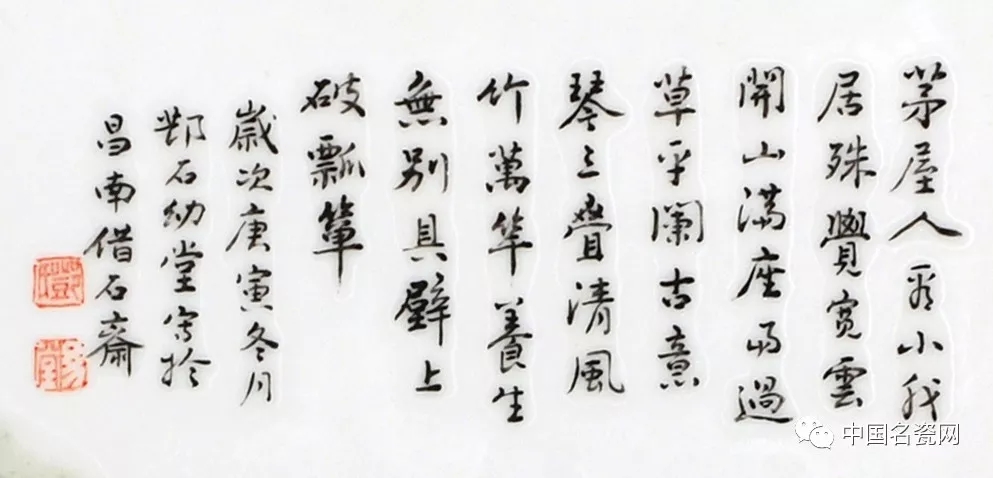 茅屋人看小我
居殊覺寬雲
開山滿座雨過
草平闌古意
琴三疊清風
竹萬竿養生
無别具壁上
破瓢簞
歲次庚寅冬月
石幼堂寫於
昌南借石齋
中国名瓷网